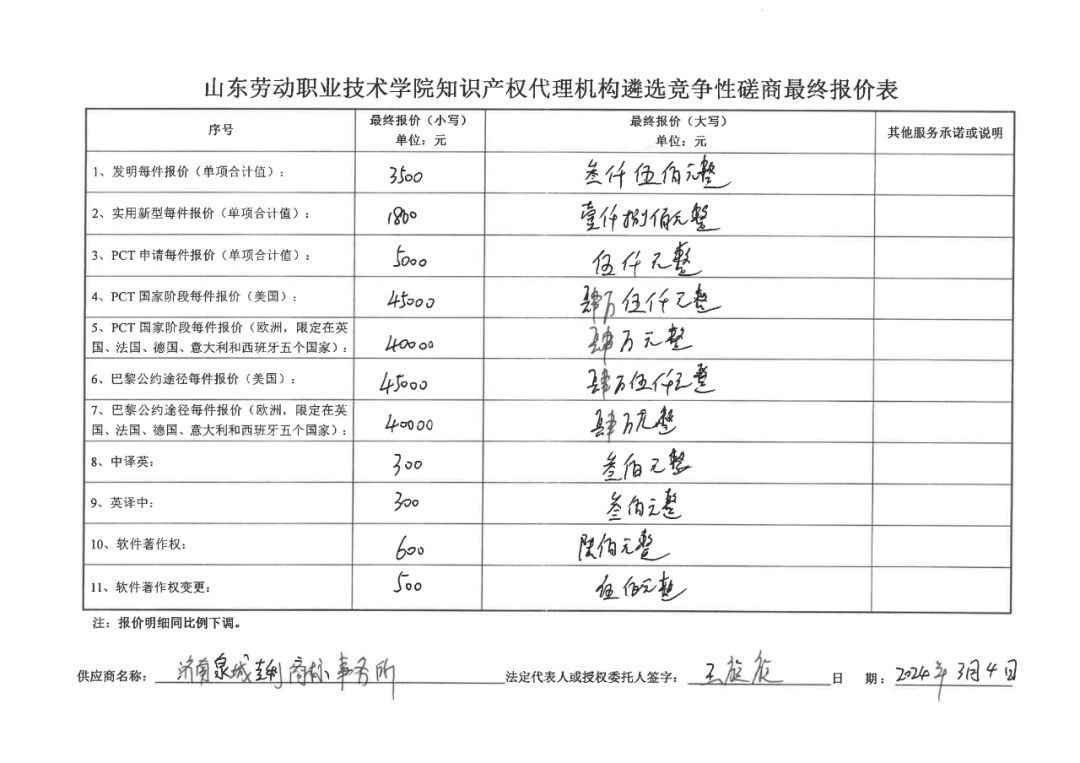 山东劳动职业技术学院知识产权代理机构遴选竞争性磋商最终报价表
序号 最终报价（小写） 单位：元 最终报价（大写） 单位：元 其他服务承诺或说明
1、发明每件报价（单项合计值）： 3500 叁仟伍佰元整
2、实用新型每件报价（单项合计值）： 1800 壹仟捌佰元整
3、PCT 申请每件报价（单项合计值）： 5000 伍仟元整
4、PCT 国家阶段每件报价（美国）： 45000 肆万伍仟元整
5、PCT 国家阶段每件报价（欧洲，限定在英
国、法国、德国、意大利和西班牙五个国家）： 40000 肆万元整
6、巴黎公约途径每件报价（美国）： 45000 肆万伍仟元整
7、巴黎公约途径每件报价（欧洲，限定在英
国、法国、德国、意大利和西班牙五个国家）： 40000 肆万元整
8、中译英： 300 叁佰元整
9、英译中： 300 叁佰元整
10、软件著作权： 600 陆佰元整
11、软件著作权变更： 500 伍佰元整
注：报价明细同比例下调。
供应商名称： 济南泉城专利商标事务所 法定代表人或授权委托人签字： 王 日 期： 2024年3月4日